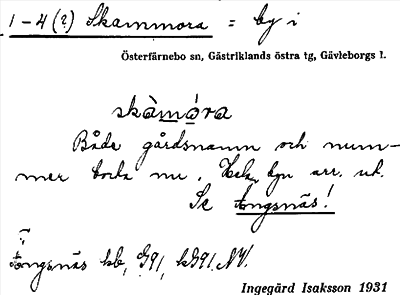 1-4(?) Skammora = by i
Österfärnebo sn, Gästriklands östra tg, Gävleborgs l.
skàmó̱ra
Både gårdsnamn och num-
mer borta nu. Hela byn arr. ut.
Se Ängsnäs!
Ängsnäs kb, G91, kG91. NV.
Ingegärd Isaksson 1931